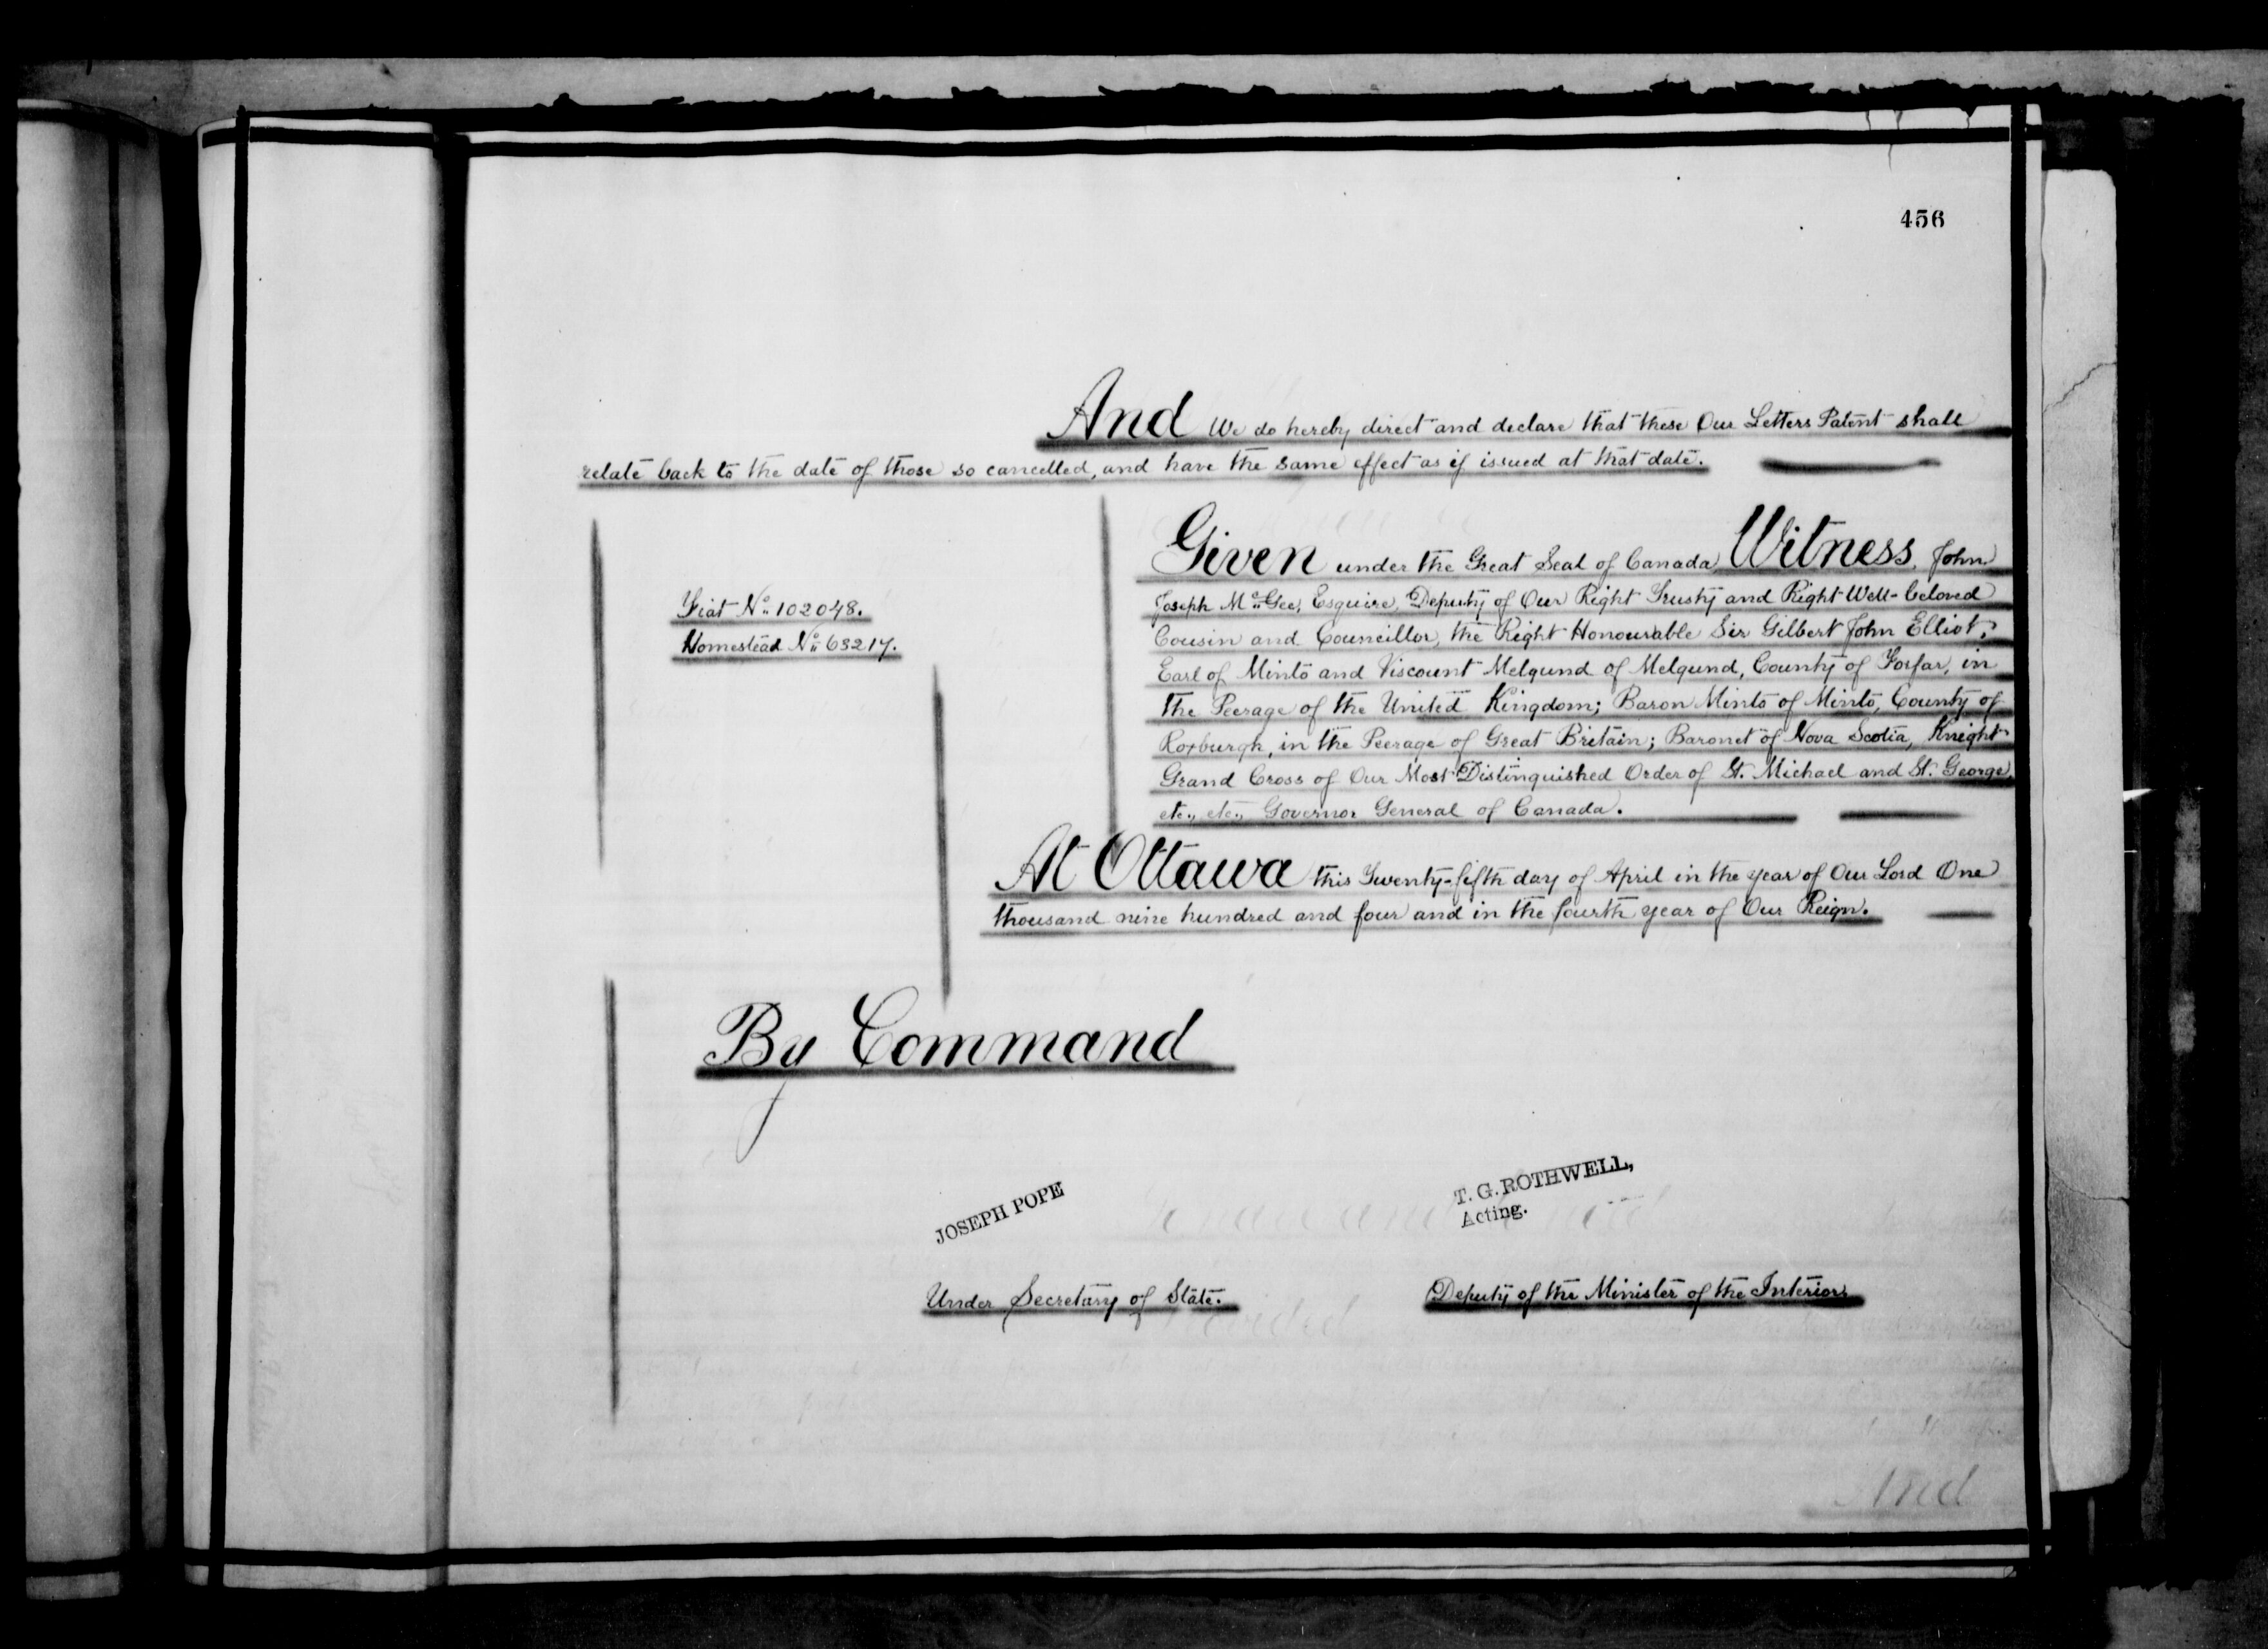 456
And We do hereby direct and declare that these Our Letters Patent shall
relate back to the date of those so cancelled, and have the same effect as if issued at that date.
Given under the Great Seal of Canada, Witness, John
Joseph McGee, Esquire, Deputy of Our Right Trusty and Right Well-beloved
Cousin and Councillor, the Right Honourable Sir Gilbert John Elliot,
Earl of Minto and Viscount Melgund of Melgund, County of Forfar, in
the Peerage of the United Kingdom; Baron Minto of Minto, County of
Roxburgh, in the Peerage of Great Britain; Baronet of Nova Scotia, Knight
Grand Cross of Our Most Distinguished Order of St. Michael and St. George,
etc., etc., Governor General of Canada.
Fiat No. 102048.
Homestead No. 63217.
At Ottawa this Twenty-fifth day of April in the year of Our Lord One
thousand nine hundred and four and in the fourth year of Our Reign.
By Command
JOSEPH POPE
Under Secretary of State.
T. G. ROTHWELL,
Acting.
Deputy of the Minister of the Interior.
And